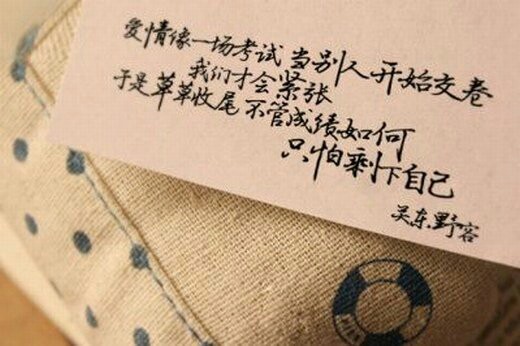 爱情像一场考试 当别人开始交卷
我们才会紧张
于是草草收尾 不管成绩如何
只怕剩下自己
关东野客